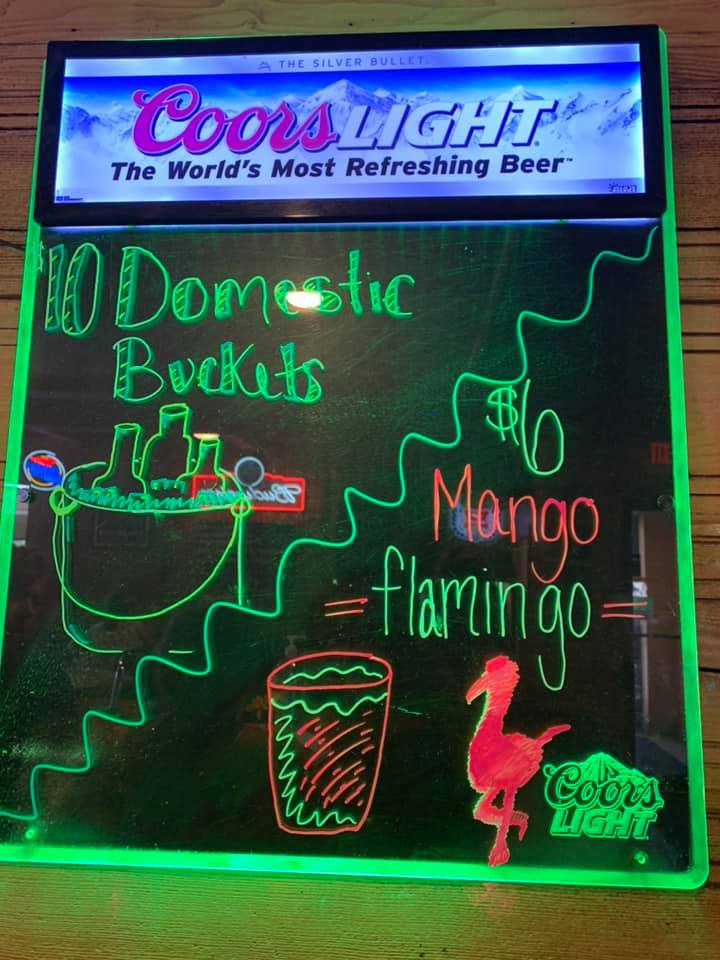 THE SILVER BULLET
Coors LIGHT
The World's Most Refreshing Beer™
$10 Domestic
Buckets
$6
Mango
= flamingo =
Coors
LIGHT